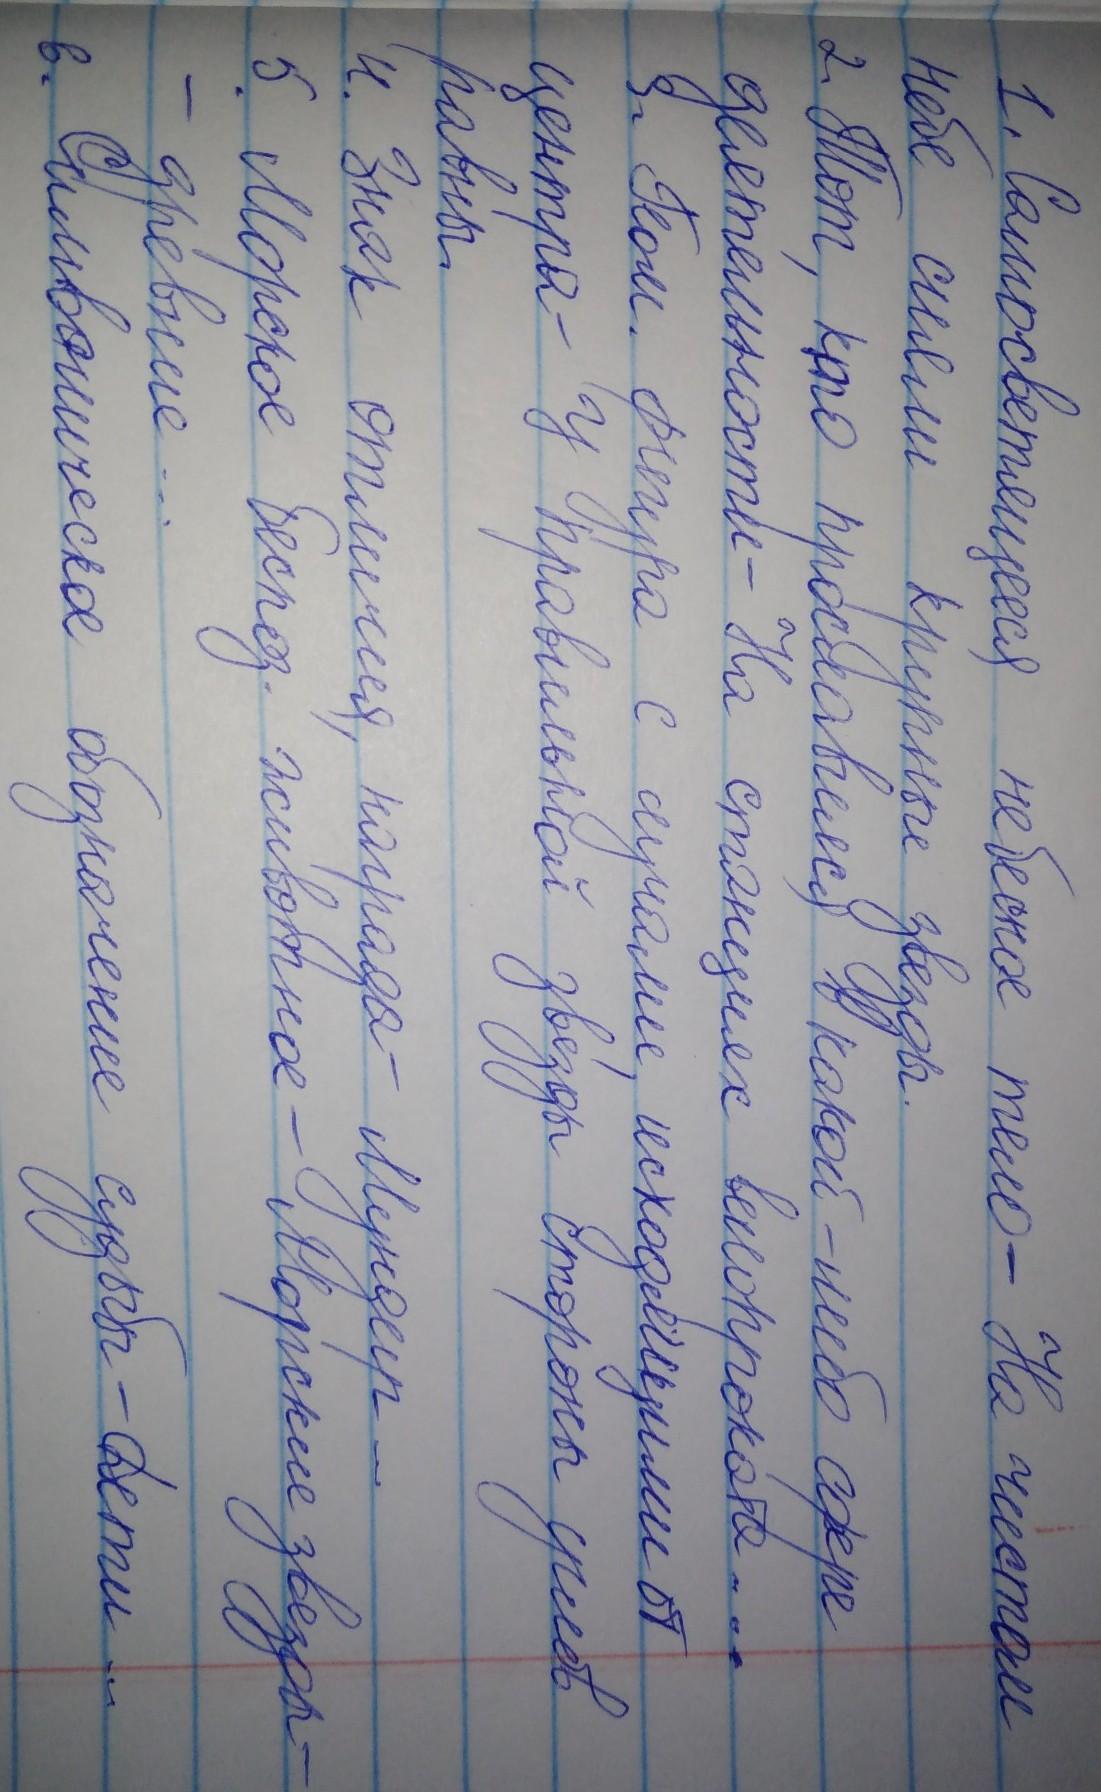 1. Самосветящееся небесное тело - На чистом
небе сияли крупные звезды.
2. Тот, кто прославился в какой-либо сфере
деятельности - На станциях велопроката...
3. Геом. фигура с лучами, исходящими от
центра - У правильной звезды стороны углов
равны.
4. Знак отличия, награда - Мундир ...
5. Морское беспоз. животное - Морские звезды -
- древние...
6. Символическое обозначение судьбы - Дети ...